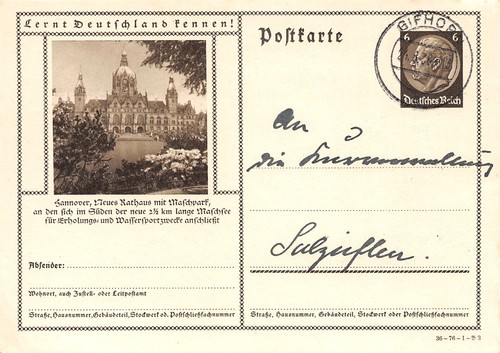 Lernt Deutschland kennen!
Postkarte
GIFHOR
6 6
Deutsches Reich
An
die Kurverwaltung
Salzuflen.
Hannover, Neues Rathaus mit Maschpark,
an den sich im Süden der neue 2½ km lange Maschsee
für Erholungs- und Wassersportzwecke anschließt
Absender:
Wohnort, auch Zustell- oder Leitpostamt
Straße, Hausnummer, Gebäudeteil, Stockwerk od. Postschließfachnummer
Straße, Hausnummer, Gebäudeteil, Stockwerk oder Postschließfachnummer
36-76-1-B3